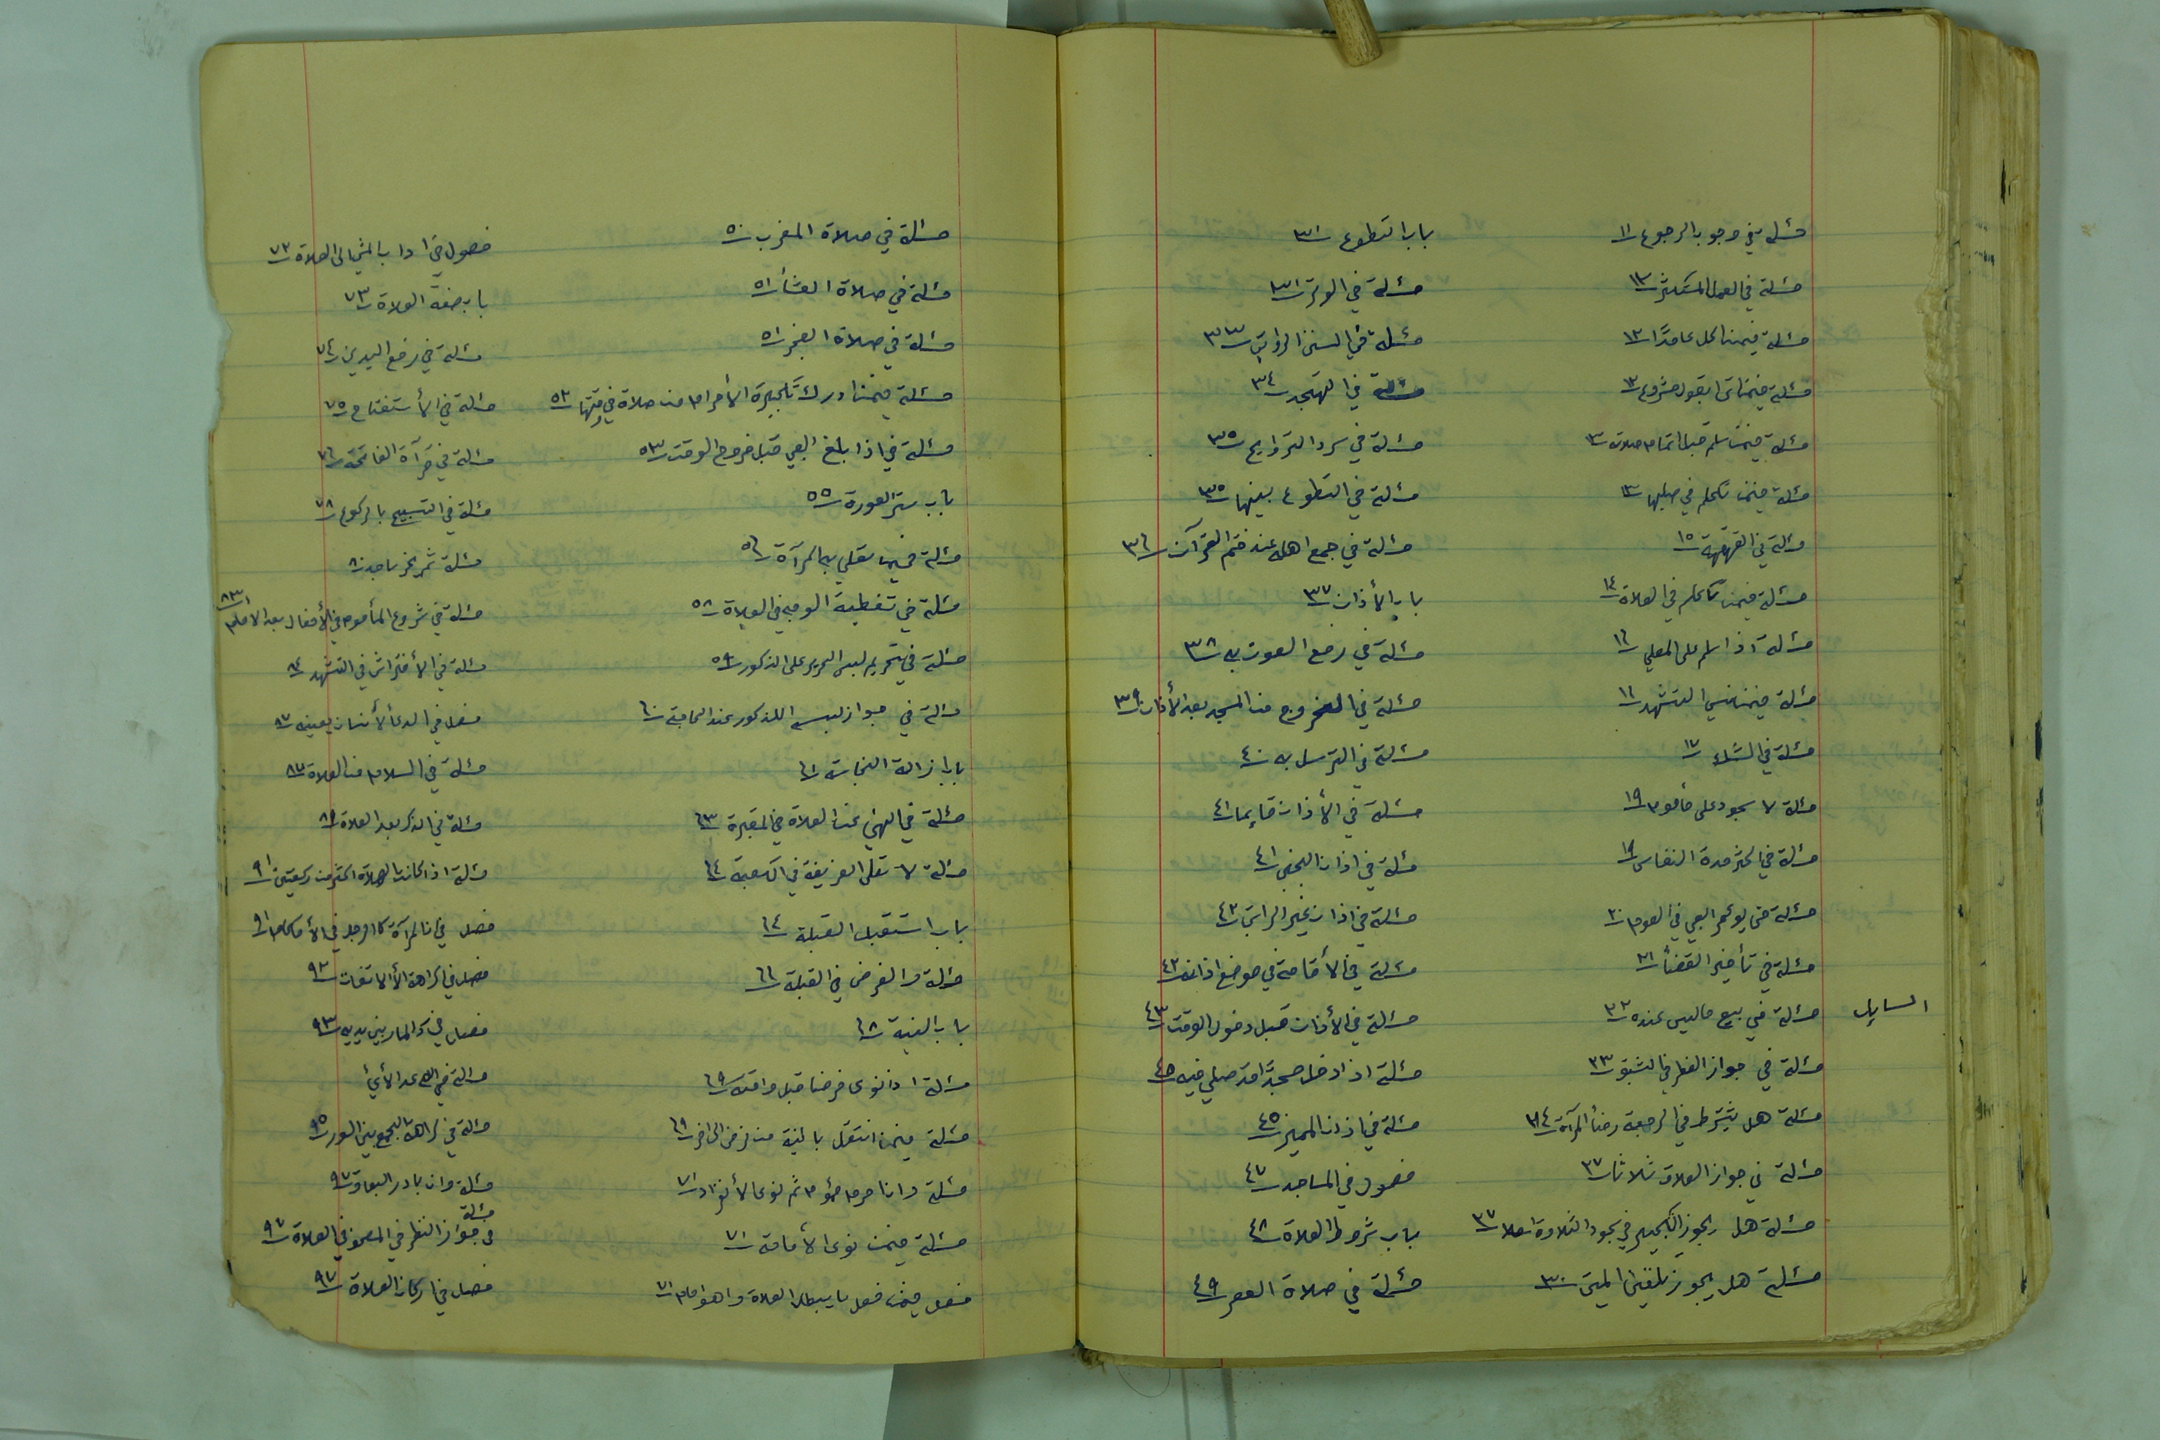 مسئلة في وجوب الرجوع ١١
مسئلة في العمل المستكثر ١٢
مسئلة فيمن اكل عامدًا ١٢
مسئلة فيمن اتى بقول مشروع ١٣
مسئلة فيمن سلم قبل اتمام صلاته ١٣
مسئلة فيمن تكلم في صلبها ١٣
مسئلة في القهقهة ١٥
مسئلة فيمن تكلم في الصلاة ١٤
مسئلة اذا سلم على المصلي ١٦
مسئلة فيمن نسي التشهد ١٦
مسئلة في الشك ١٧
مسئلة لا سجود على مأموم ١٩
مسئلة في اكثر مدة النفاس ١٩
مسئلة متى يؤمر الصبي في الصوم ٢٠
مسئلة في تأخير القضأ ٢١
السايل
مسئلة في بيع ما ليس عنده ٢٢
مسئلة في جواز الفطر في التبقو ٢٣
مسئلة هل يشترط في الرجعة رضأ المرأة ٢٤
مسئلة في جواز الطلاق ثلاثا ٢٧
مسئلة هل يجوز التكبير في سجود التلاوة ام لا ٢٧
مسئلة هل يجوز تلقين الميت ٣٠
باب التطوع ٣١
مسئلة في الوتر ٣١
مسئلة في السنن الرواتب ٣٣
مسئلة في التهجد ٣٤
مسئلة في سرد التراويح ٣٥
مسئلة في التطوع بينها ٣٥
مسئلة في جمع اهله عند ختم القرآن ٣٦
باب الأذان ٣٧
مسئلة في رفع الصوت به ٣٨
مسئلة في الخروج من المسجد بعد الأذان ٣٩
مسئلة في الترسل به ٤٠
مسئلة في الأذان قايما ٤١
مسئلة في اذان الجنب ٤١
مسئلة في اذان غير الراتب ٤٢
مسئلة في الأقامة في موضع اذانه ٤٢
مسئلة في الأذان قبل دخول الوقت ٤٣
مسئلة اذا دخل مسجدًا قد صلي فيه ٤٥
مسئلة في اذان المميز ٤٥
فصول في المساجد ٤٧
باب شروط الصلاة ٤٨
مسئلة في صلاة العصر ٤٩
مسئلة في صلاة المغرب ٥٠
مسئلة في صلاة العشأ ٥١
مسئلة في صلاة الفجر ٥١
مسئلة فيمن ادرك تكبيرة الأحرام من صلاة في وقتها ٥٢
مسئلة في اذا بلغ الصبي قبل خروج الوقت ٥٣
باب ستر العورة ٥٥
مسئلة فيما تصلي به المرآة ٥٦
مسئلة في تغطية الوجه في الصلاة ٥٨
مسئلة في تحريم لبس الحرير على الذكور ٥٩
مسئلة في جواز لبسه اللذكور عند الحاجة ٦٠
باب ازالة النجاسة ٦١
مسئلة في النهي عن الصلاة في المقبرة ٦٣
مسئلة لا تصلى الفريضة في الكعبة ٦٤
باب استقبل القبلة ٦٤
مسئلة والفرض في القبلة ٦٦
باب النية ٦٨
مسئلة اذا نوى فرضا قبل وقته ٦٩
مسئلة فيمن انتقل بالنية من فرض الى اخر ٦٩
مسئلة وان احرم مؤتم ثم نوى الأنفراد ٧١
مسئلة فيمن نوى الأمامة ٧١
فصل فيمن فعل ما يبطل الصلاة وهو امام ٧١
فصول في اداب المشي الى الصلاة ٧٢
باب صفة الصلاة ٧٣
مسئلة في رفع اليدين ٧٤
مسئلة في الأستفتاح ٧٥
مسئلة في قرآة الفاتحة ٧٦
مسئلة في التسبيح بالركوع ٧٨
مسئلة ثم يخر ساجد ٨٠
مسئلة في شروع المأموم في الأفعال بعد الامام ٨٣
مسئلة في الأفتراش في التشهد ٨٤
فصل في الدعأ لأنسان بعينه ٨٧
مسئلة في السلام من الصلاة ٨٧
مسئلة في الذكر بعد الصلاة ٨٩
مسئلة اذا كانت الصلاة اكثر من ركعتين ٩١
فصل في ان المرآة كالرجل في الأحكام ٩١
فصل في كراهة الألاتفات ٩٢
فصل في رد المار بين يديه ٩٣
مسئلة في عد الأي
مسئلة في كراهة الجمع بين السور ٩٥
مسئلة وان بادر البصاق ٩٧
مسئلة في جواز النظر في المصحف في الصلاة ٩٧
فصل في اركان الصلاة ٩٧